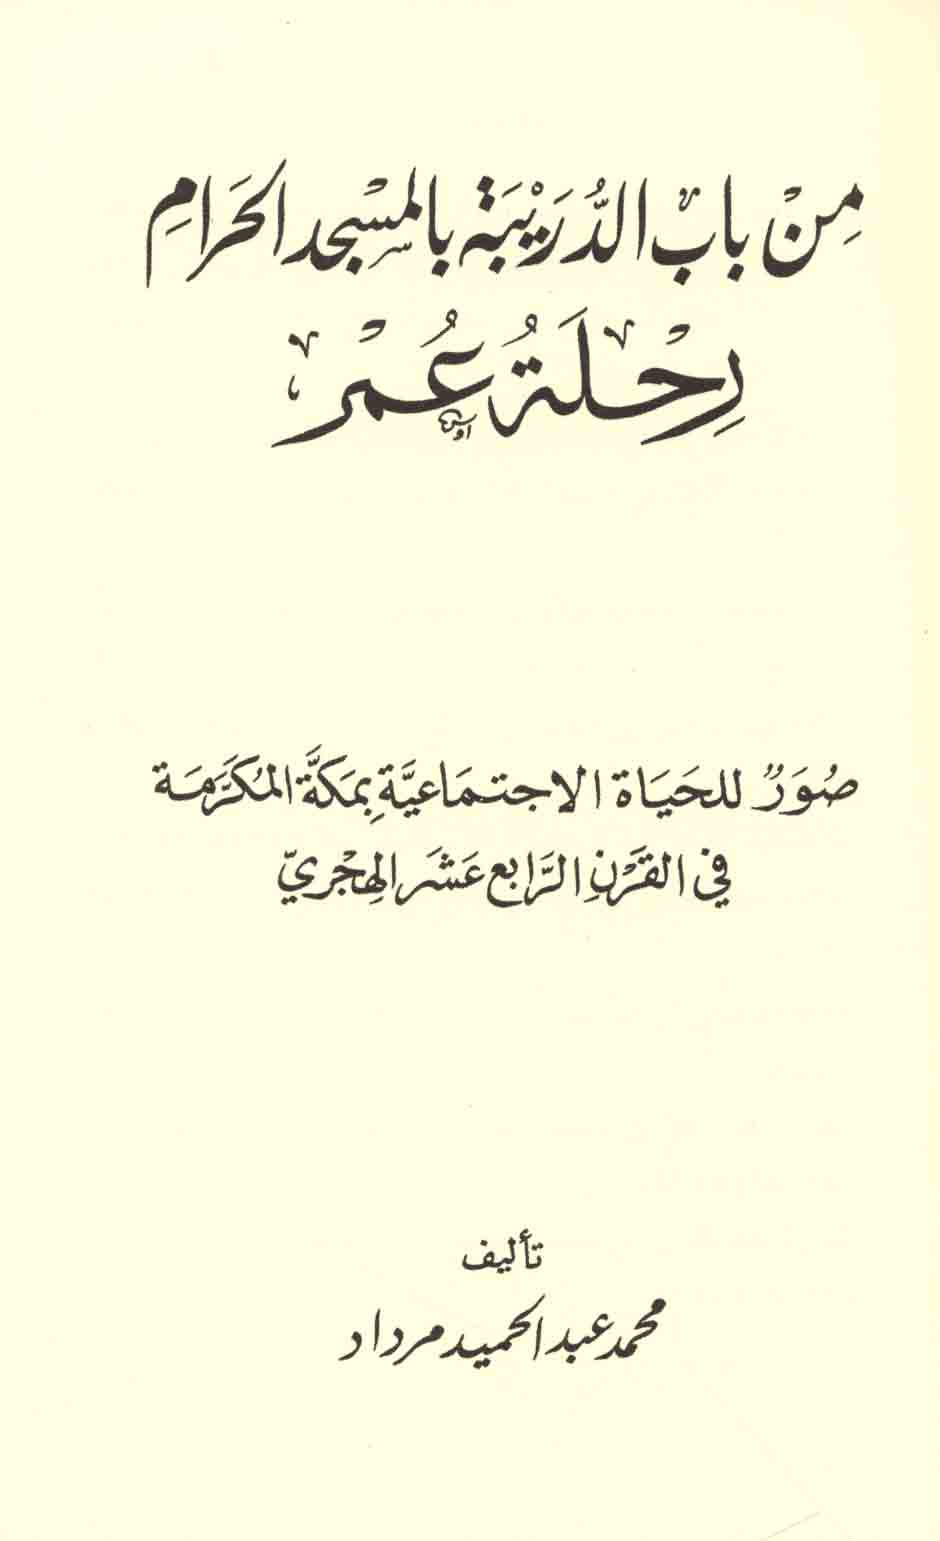 مِنْ بابِ الدُّرَيْبَة بالمسْجد الحَرامِ
رِحْلَةُ عُمْر
صُوَرٌ للحَيَاة الاجتمَاعيَّة بِمَكَّة المُكَرَّمَة
في القَرْنِ الرَّابع عَشَر الهِجْريّ
تأليف
محمد عبد الحميد مرداد